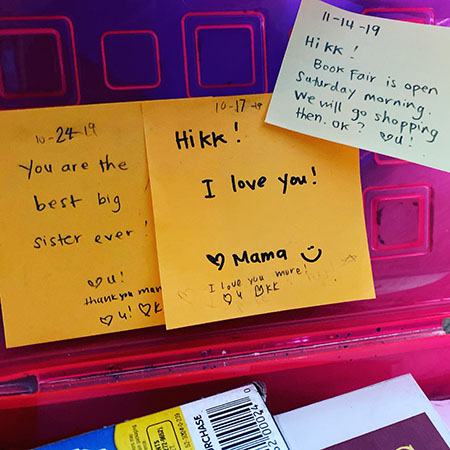 10-24-19
You are the
best big
sister ever!
♡ u!
thank you mam
♡ u! ♡ K
10-17-19
Hi KK!
I love you!
♡ Mama
I love you more!
♡ u ♡ KK
11-14-19
Hi KK!
Book Fair is open
Saturday morning.
We will go shopping
then. OK? ♡ u!
PURCHASE